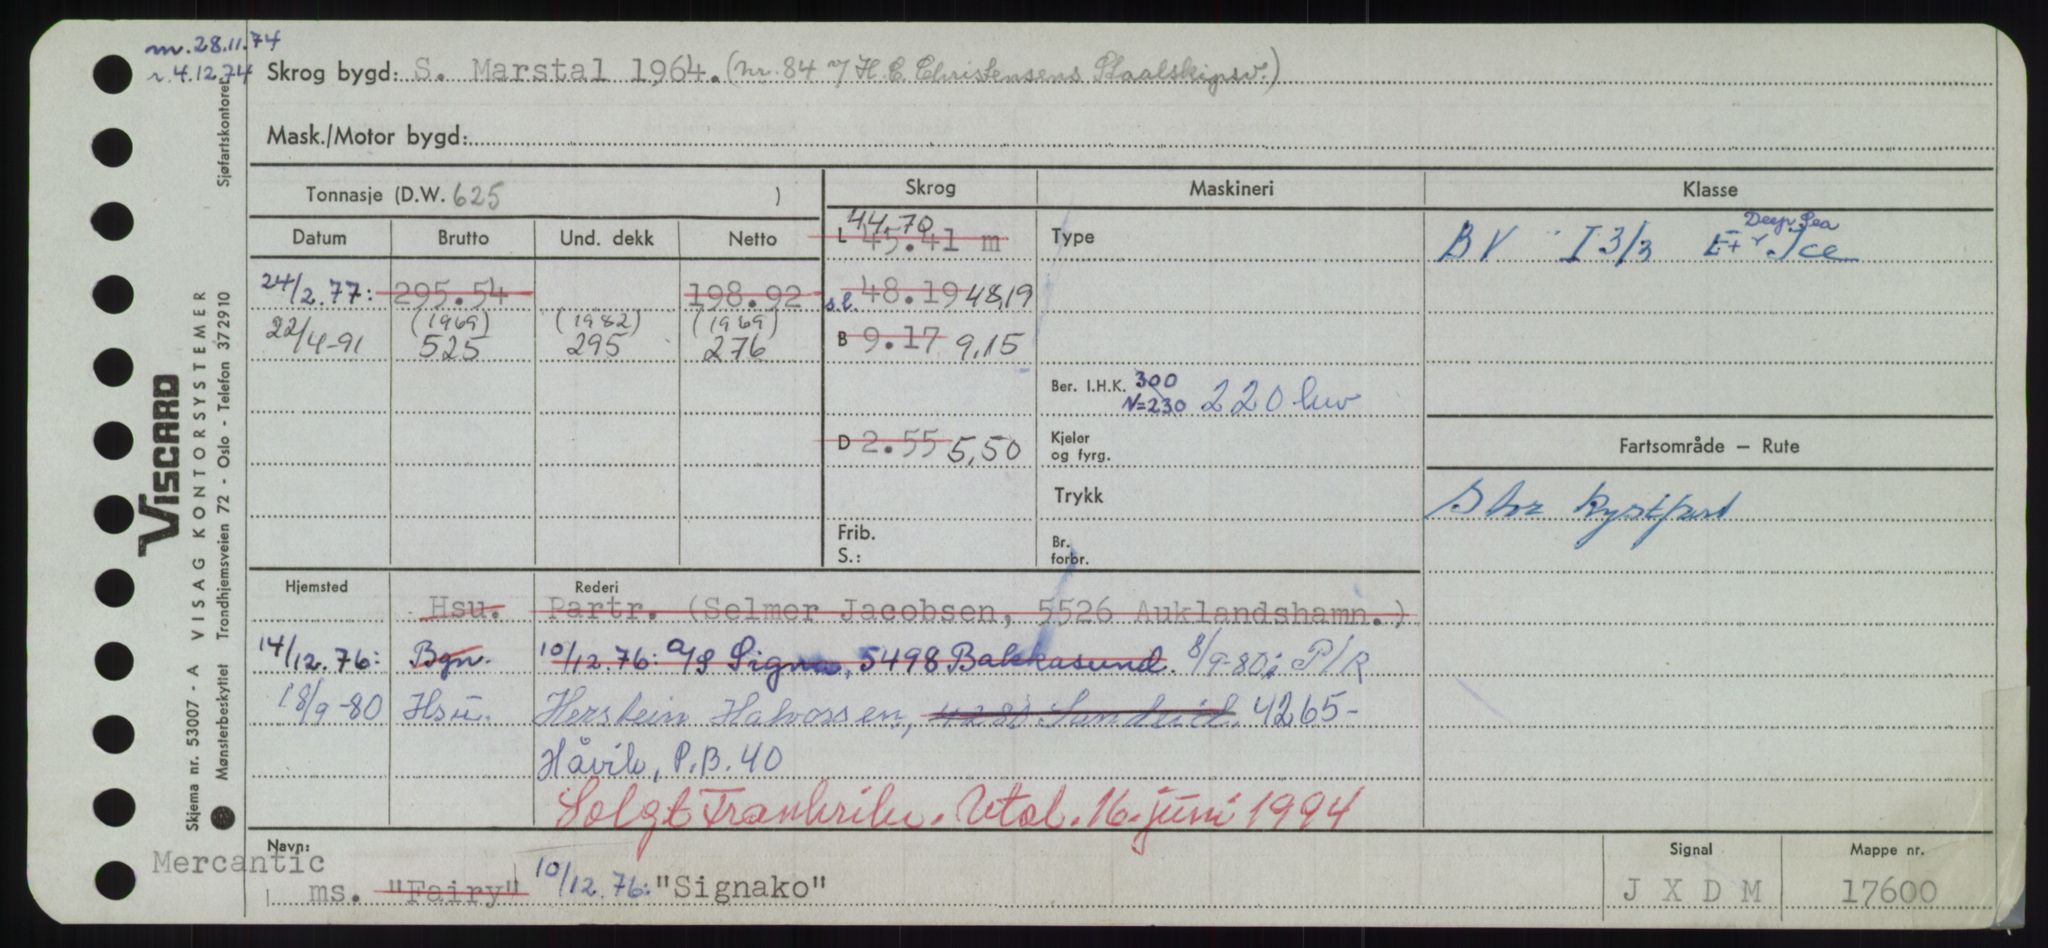 m. 28.11.74
r. 4.12.74
Skrog bygd: S. Marstal 1964. (nr. 84 v/ H. C. Christensens Staalskipsv.)
Mask./Motor bygd:
Tonnasje (D.W. 625 )
Skrog
Maskineri
Klasse
Datum Brutto Und. dekk Netto
44,70
L 45.41 m
Type
BV I 3/3 E+ Ice
Deep Sea
24/2.77: 295.54 198.92
s.l. 48.19 48,19
(1969) (1982) (1969)
22/4-91 525 295 276
B 9.17 9,15
Ber. I.H.K. 300
N=230 220 kw
D 2.55 5,50
Kjeler
og fyrg.
Fartsområde – Rute
Trykk
Stor kystfart
Frib.
S.:
Br.
forbr.
Hjemsted
Rederi
Hsu. Partr. (Selmer Jacobsen, 5526 Auklandshamn.)
14/12.76: Bgn. 10/12.76: A/S Signa, 5498 Bakkasund. 8/9-80: P/R
18/9-80 Hsu. Herstein Halvorsen, 4265-
Håvik, P.B. 40
Solgt Frankrike. Utsl. 16. juni 1994
Navn:
Mercantic
ms. "Fairy" 10/12.76: "Signako"
Signal
J X D M
Mappe nr.
17600
VISCARD
Skjema nr. 53007 - A VISAG KONTORSYSTEMER
Mønsterbeskyttet Trondhjemsveien 72 - Oslo - Telefon 372910
Sjøfartskontoret